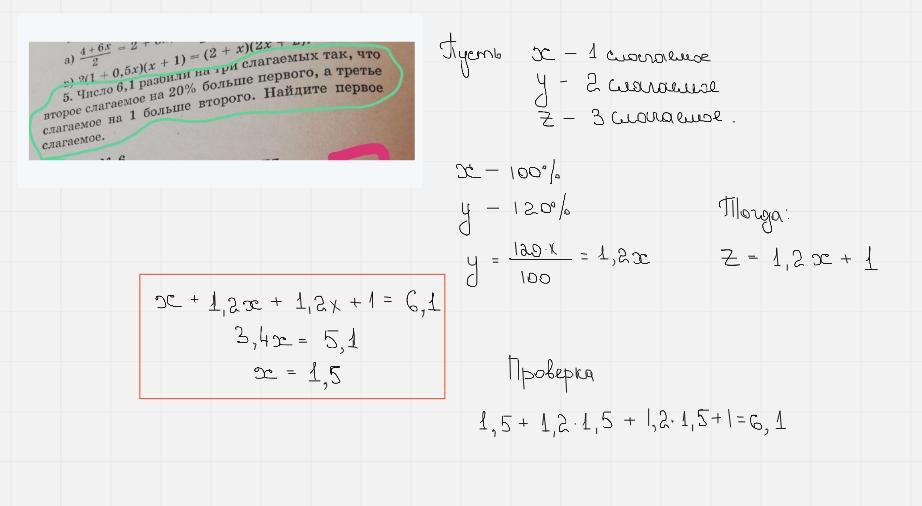 а) 4 + 6x / 2 = 2 +
2(1 + 0,5x)(x + 1) = (2 + x)(2x +
5. Число 6,1 разбили на три слагаемых так, что
второе слагаемое на 20% больше первого, а третье
слагаемое на 1 больше второго. Найдите первое
слагаемое.
Пусть x – 1 слагаемое
y – 2 слагаемое
z – 3 слагаемое.
x – 100%
y – 120%
y = 120·x / 100 = 1,2x
Тогда:
z = 1,2x + 1
x + 1,2x + 1,2x + 1 = 6,1
3,4x = 5,1
x = 1,5
Проверка
1,5 + 1,2·1,5 + 1,2·1,5+1=6,1